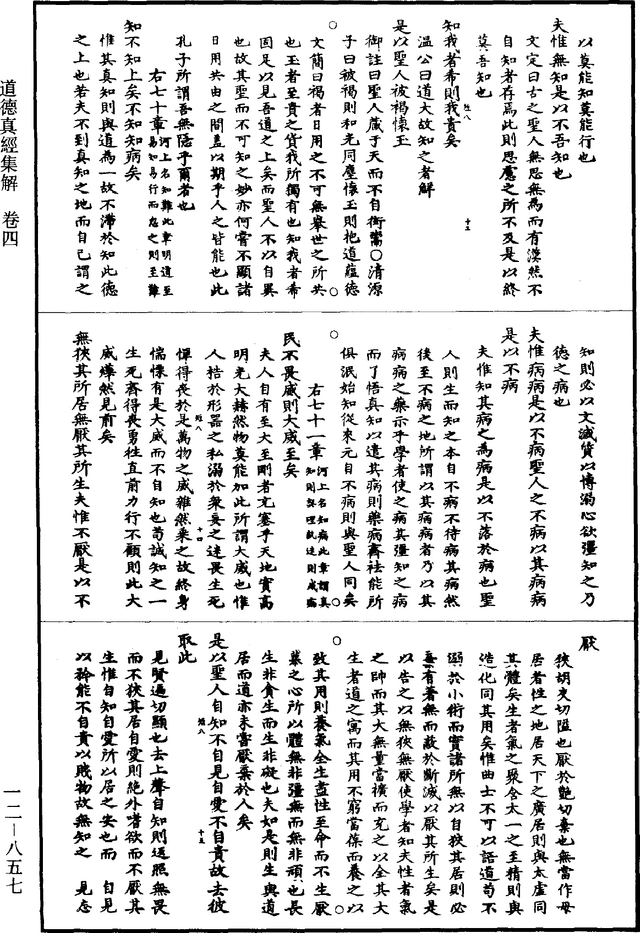 以莫能知莫能行也
夫惟無知是以不吾知也
文定曰古之聖人無思無為而有漠然不
自知者存焉此則思慮之所不及是以終
莫吾知也
知我者希則我貴矣
溫公曰道大故知之者鮮
是以聖人被褐懷玉
御註曰聖人藏于天而不自衒鬻○清源
子曰被褐則和光同塵懷玉則抱道蘊德
文簡曰褐者日用之不可無舉世之所共
也玉者至貴之貨我所獨有也知我者希
固足以見吾道之上矣而聖人不以自異
也故其聖而不可知之妙亦何嘗不顯諸
日用共由之間蓋以期乎人之皆能也此
孔子所謂吾無隱乎爾者也
右七十章河上名知難此章明道至易知易行而忽之則至難
知不知上矣不知知病矣
惟其真知則與道為一故不滯於知此德
之上也若夫不到真知之地而自己謂之
知則必以文滅質以博溺心欲彊知之乃
德之病也
夫惟病病是以不病聖人之不病以其病病
是以不病
夫惟知其病之為病是以不落於病也聖
人則生而知之本自不病不待病其病然
後至不病之地所謂以其病病者乃以其
病病之藥示乎學者使之病其彊知之病
而了悟真知以遣其病則藥病齊祛能所
俱泯始知從來元自不病則與聖人同矣
右七十一章河上名知病此章謂真知則與理凱達則成病
民不畏威則大威至矣
夫人自有至大至剛者充塞乎天地實高
明光大赫然物莫能加此所謂大威也惟
人梏於形器之私溺於衆妄之迷畏生死
憚得喪於是萬物之威雜然乘之故終身
惴慄有是大威而不自知也苟誠知之一
生死齊得喪勇往直前力行不顧則此大
威燁然見前矣
無狹其所居無厭其所生夫惟不厭是以不
厭
狹胡夾切隘也厭於艷切棄也無當作毋
居者性之地居天下之廣居則與太虛同
其體矣生者氣之聚含太一之至精則與
造化同其用矣惟曲士不可以語道苟不
溺於小術而實諸所無以自狹其居則必
棄有著無而蔽於斷滅以厭其所生矣是
以告之以無狹無厭使學者知夫性者氣
之帥而其大無量當擴而充之以全其大
生者道之寓而其用不窮當葆而養之以
致其用則養氣全生盡性至命而不生厭
慕之心所以體無非彊無而無非頑也長
生非貪生而生非礙也夫如是則生與道
居而道亦未嘗厭棄於人矣
是以聖人自知不自見自愛不自貴故去彼
取此
見賢遍切顯也去上聲自知則返照無畏
而不狹其居自愛則絕外嗜欲而不厭其
生惟自知自愛所以居之安也而 自見
以矜能不自貴以賤物故無知之 見忘
道德真經集解 卷四
一二—八五七